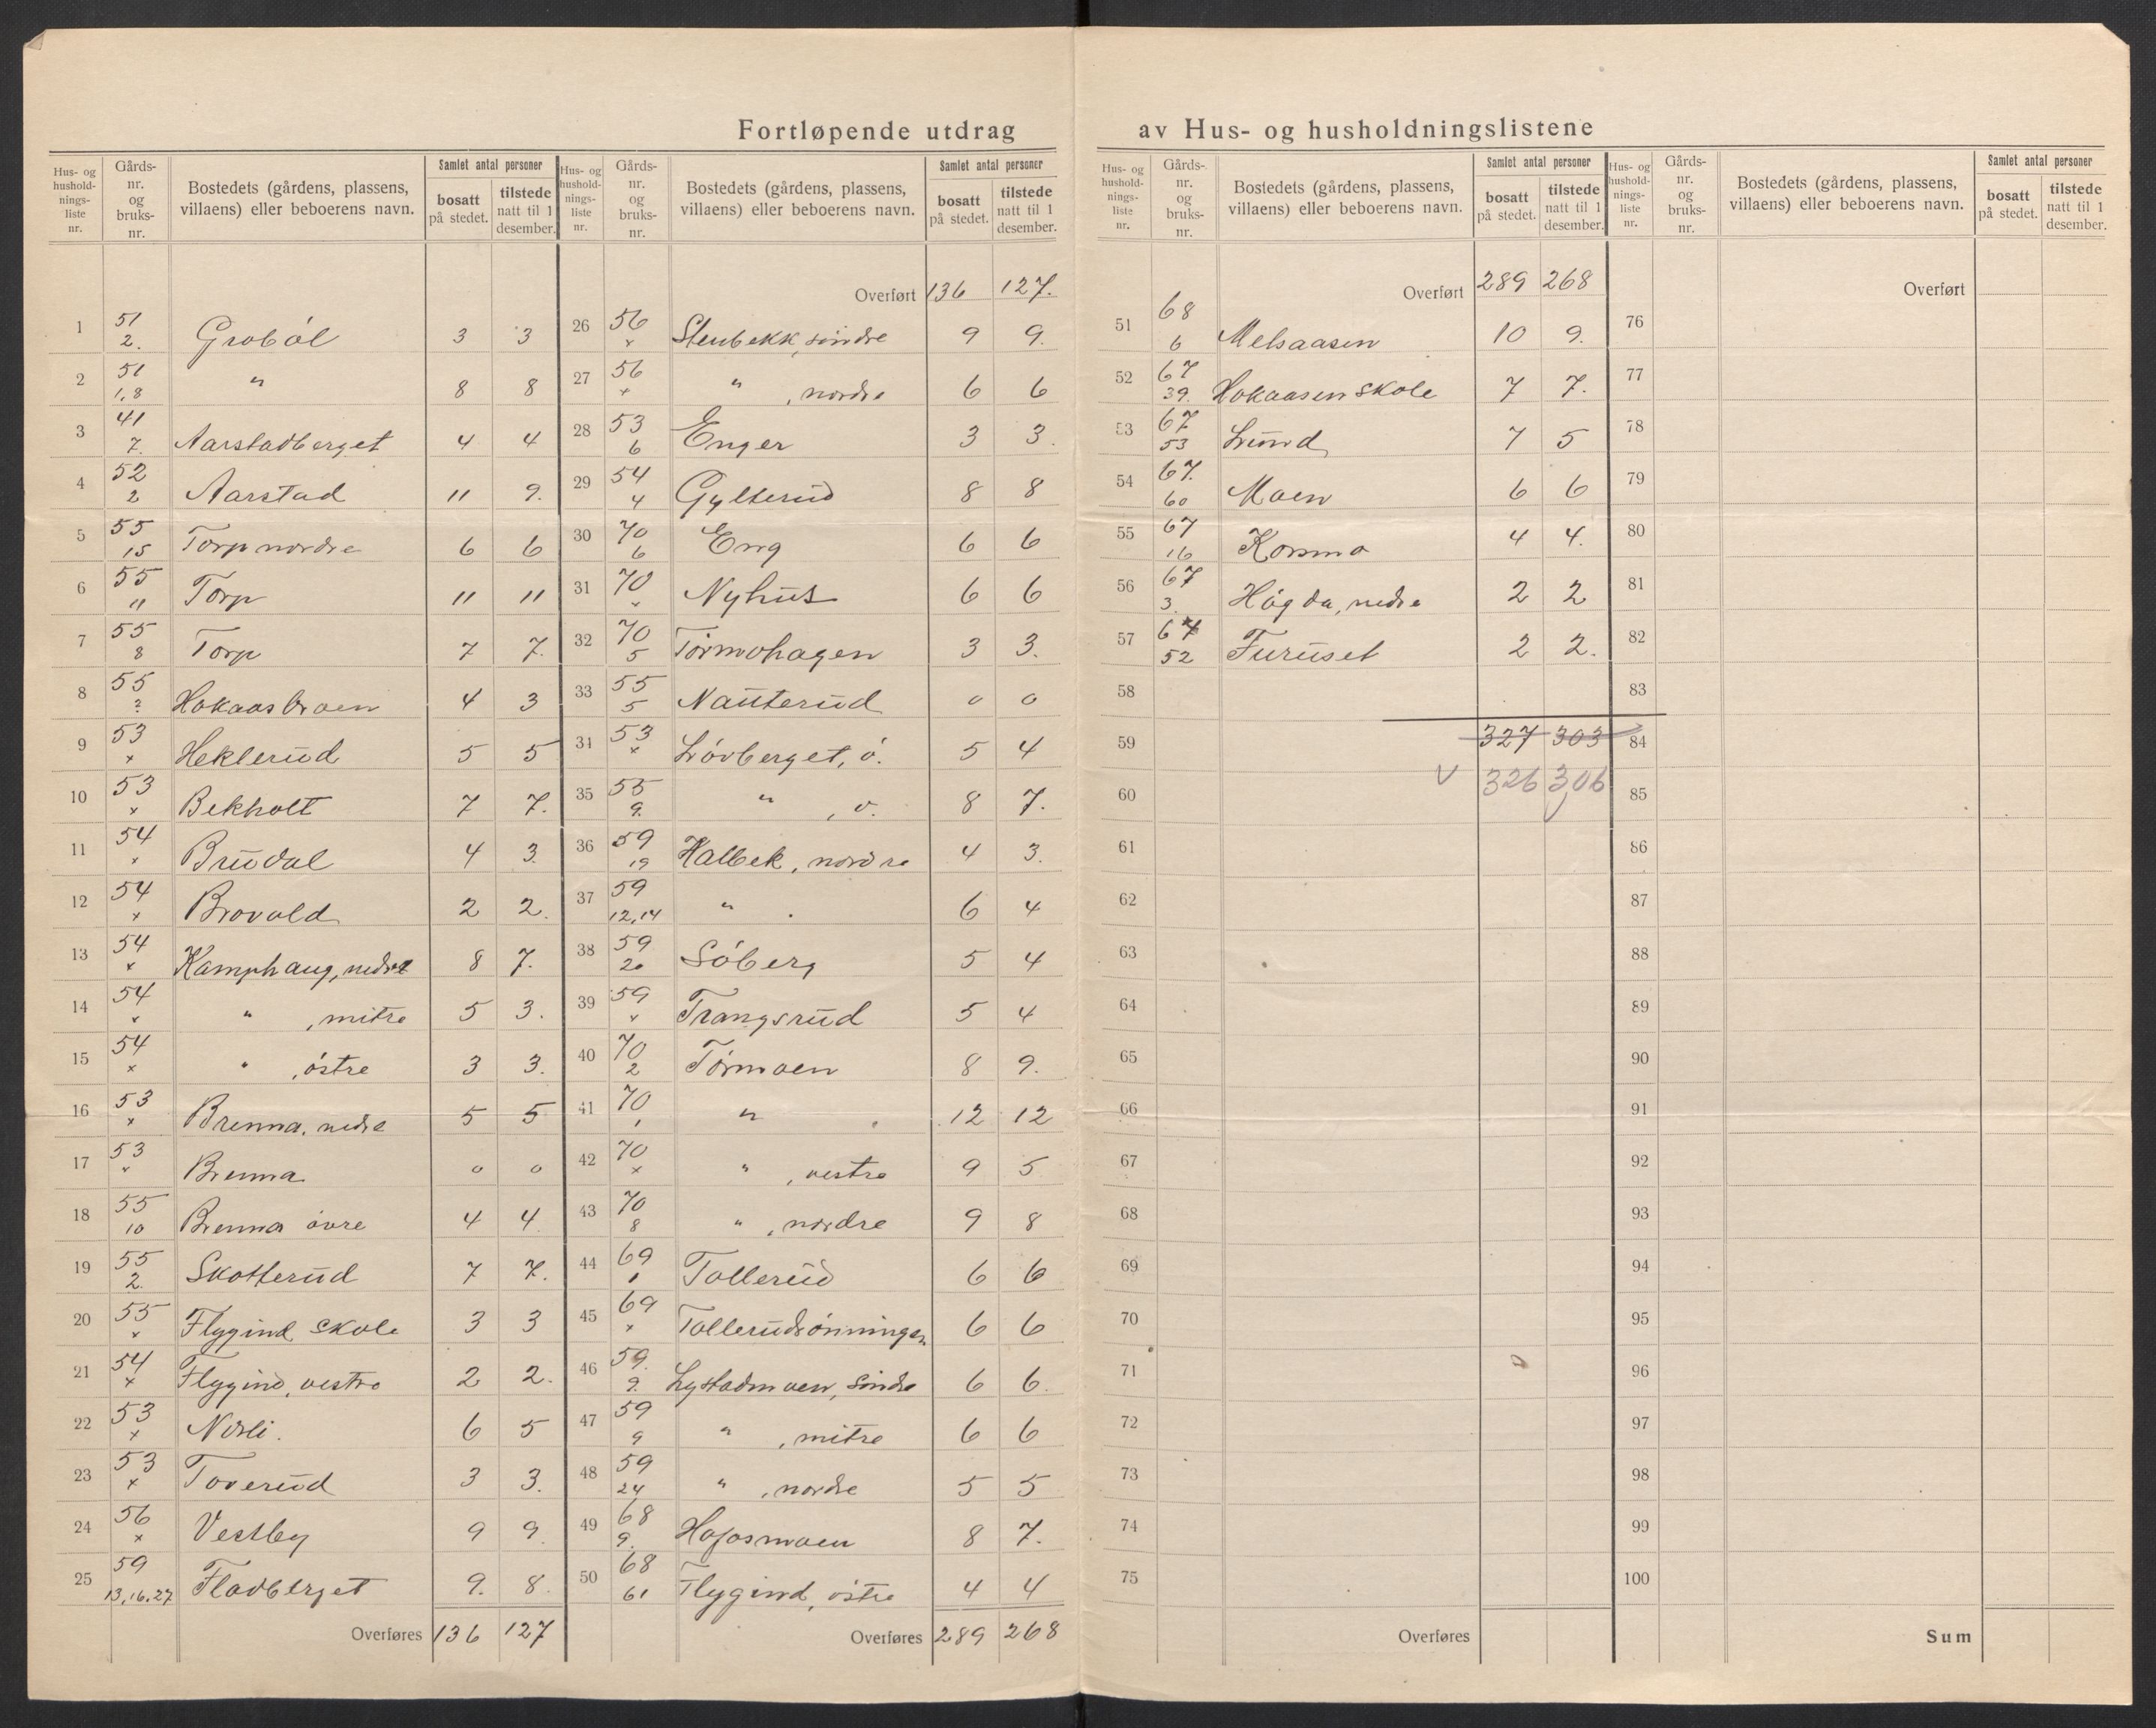 Fortløpende utdrag av Hus- og husholdningslistene
Hus- og husholdnings- liste nr. | Gårds- nr. og bruks- nr. | Bostedets (gårdens, plassens, villaens) eller beboerens navn. | Samlet antal personer bosatt på stedet. | tilstede natt til 1 desember.
1 51 2. Grobøl 3 3
2 51 1,8 " 8 8
3 41 7. Aarstadberget 4 4
4 52 2 Aarstad 11 9.
5 55 15 Torp nordre 6 6
6 55 11 Torp 11 11
7 55 8 Torp 7 7.
8 55 ? Hokaasbraaen 4 3
9 53 × Heklerud 5 5
10 53 × Bekholt 7 7.
11 54 × Brudal 4 3.
12 54 × Brovold 2 2.
13 54 × Kamphaug, nedre 8 7.
14 54 × " , mitre 5 3.
15 54 × " , östre 3 3.
16 53 × Brenna, nedre 5 5
17 53 × Brenna 0 0
18 55 10 Brenna övre 4 4
19 55 2. Skotterud 7 7.
20 55 × Flygind skole 3 3
21 54 × Flygind, vestre 2 2.
22 53 × Norli. 6 5
23 53 × Toverud 3 3.
24 56 × Vestby 9 9.
25 59 13,16,27 Fladberget 9. 8.
Overføres 136 127
Overført 136 127.
26 56 × Stenbekk, søndre 9 9.
27 56 × " , nordre 6 6
28 53 6 Enger 3 3.
29 54 4 Gylterud 8 8
30 70 6 Eng 6 6
31 70 × Nyhus 6 6
32 70 5 Tørmohagen 3 3.
33 55 5 Nauterud 0 0
34 53 × Lövberget, ö. 5 4
35 55 9. " , v. 8 7.
36 59 19 Kalbek, nordre 4 3.
37 59 12,14 " . 6 4
38 59 20 Söberg 5 4
39 59 × Trangsrud 5 4
40 70 2 Tørmoen 8 9.
41 70 1 " . 12 12
42 70 × " , vestre 9 5
43 70 8 " , nordre 9 8
44 69 1 Tollerud 6 6
45 69 × Tollerudrönningen 6 6
46 59. 9. Lystadmoen, söndre 6 6.
47 59 9 " , mitre 6 6
48 59 24 " , nordre 5 5
49 68 9. Hofosmoen 8 7.
50 68 61 Flygind, östre 4 4
Overføres 289 268
Overført 289 268
51 68 6 Melsaasen 10 9.
52 67 39. Hokaasen skole 7 7.
53 67 53 Lund 7 5
54 67. 60 Moen 6 6
55 67 16 Kosmo 4 4.
56 67 3. Högda, nedre 2 2
57 67 52 Furuset 2 2.
58
59 327 303
60 V 326 306
61
62
63
64
65
66
67
68
69
70
71
72
73
74
75
Overføres
Overført
76
77
78
79
80
81
82
83
84
85
86
87
88
89
90
91
92
93
94
95
96
97
98
99
100
Sum